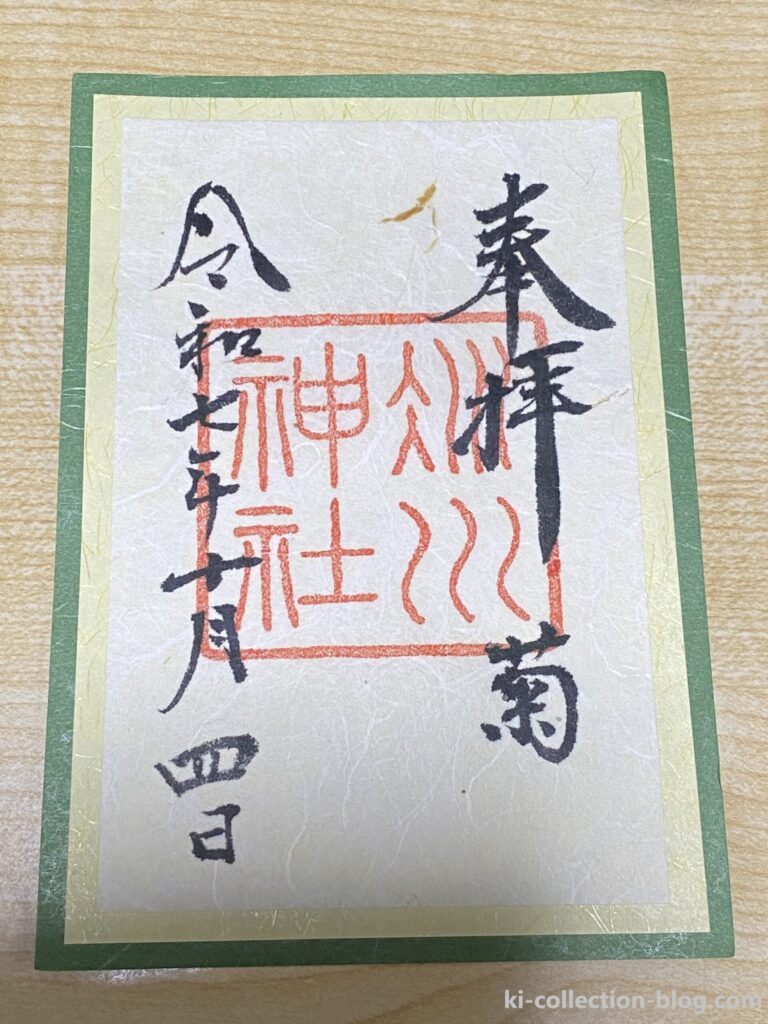 奉拝 菊
氷川
神社
令和七年十月四日
ki-collection-blog.com